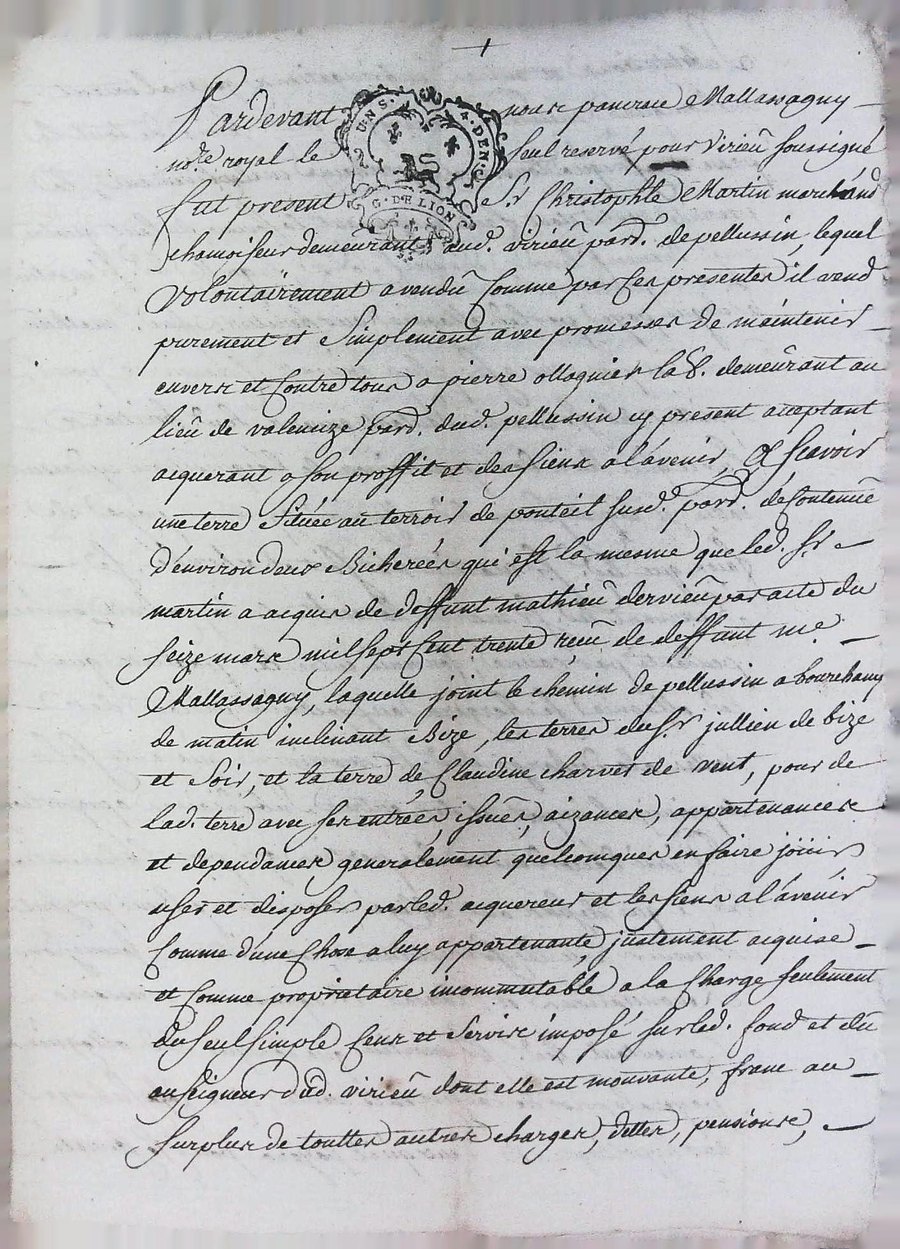 Pardevant nous pancrace Mallassagny
no.re royal le seul reservé pour virieu soussigné
fut present S.r Christophle Martin marchand
chamoiseur demeurant aud. virieu par.d de pellussin, lequel
volontairement a vendu comme par ces presentes il vend
purement et simplement avec promesses de maintenir
envers et contre tous a pierre ollagnier lab. demeurant au
lieu de valencize par.d dud. pellussin cy present acceptant
acquerant a son proffit et des siens a l'avenir, A scavoir
une terre située au terroir de ponteil susd. par.d de contenue
d'environ deux Bicherées qui est la mesme que led. S.r
martin a acquis de deffunt mathieu dervieu par acte du
seize mars mil sept cent trente reçu de deffunt m.e
Mallassagny, laquelle joint le chemin de pellussin a bourchany
de matin inclinant Bize, les terres du S.r jullien de bize
et soir, et la terre de Claudine charvet de vent, pour de
lad. terre avec ses entrées, issuës, aizances, appartenances
et dependances generalement quelconques en faire jouir
user et disposer par led. acquereur et les siens a l'avenir
comme d'une chose a luy appartenante justement acquise
et comme proprietaire incommutable a la charge seulement
du seul simple cens et servis imposé sur led. fond et dû
au seigneur dud. virieu dont elle est mouvante, franc au
surplus de touttes autres charges, dettes, pensions,
UN S. 4. DEN.
G. DE LION